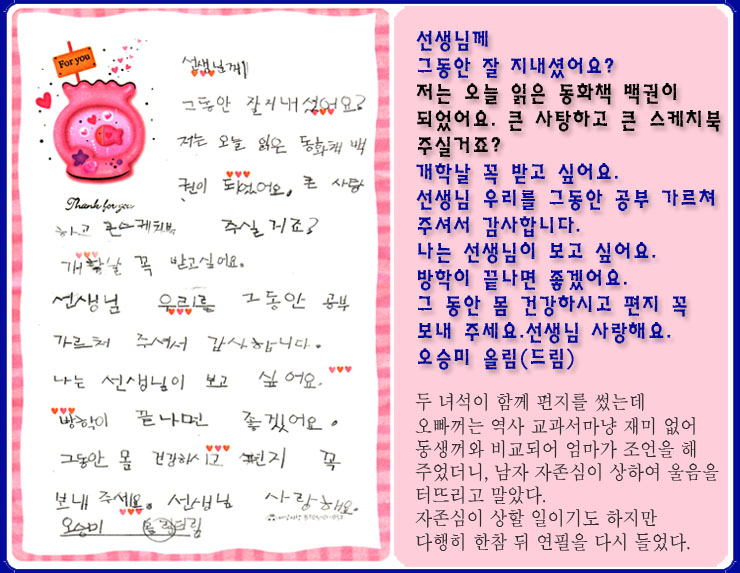 For you
선생님께
그동안 잘 지내셨어요?
저는 오늘 읽은 동화책 백
권이 되었어요. 큰 사탕
Thank for you
하고 큰스케치북 주실거죠?
개학날 꼭 받고싶어요.
선생님 우리를 그동안 공부
가르쳐 주셔서 감사합니다.
나는 선생님이 보고 싶어요.
방학이 끝나면 좋겠어요.
그동안 몸 건강하시고 편지 꼭
보내 주세요. 선생님 사랑해요.
오승미 올림드림
선생님께
그동안 잘 지내셨어요?
저는 오늘 읽은 동화책 백권이
되었어요. 큰 사탕하고 큰 스케치북
주실거죠?
개학날 꼭 받고 싶어요.
선생님 우리를 그동안 공부 가르쳐
주셔서 감사합니다.
나는 선생님이 보고 싶어요.
방학이 끝나면 좋겠어요.
그 동안 몸 건강하시고 편지 꼭
보내 주세요.선생님 사랑해요.
오승미 올림(드림)
두 녀석이 함께 편지를 썼는데
오빠꺼는 역사 교과서마냥 재미 없어
동생꺼와 비교되어 엄마가 조언을 해
주었더니, 남자 자존심이 상하여 울음을
터뜨리고 말았다.
자존심이 상할 일이기도 하지만
다행히 한참 뒤 연필을 다시 들었다.